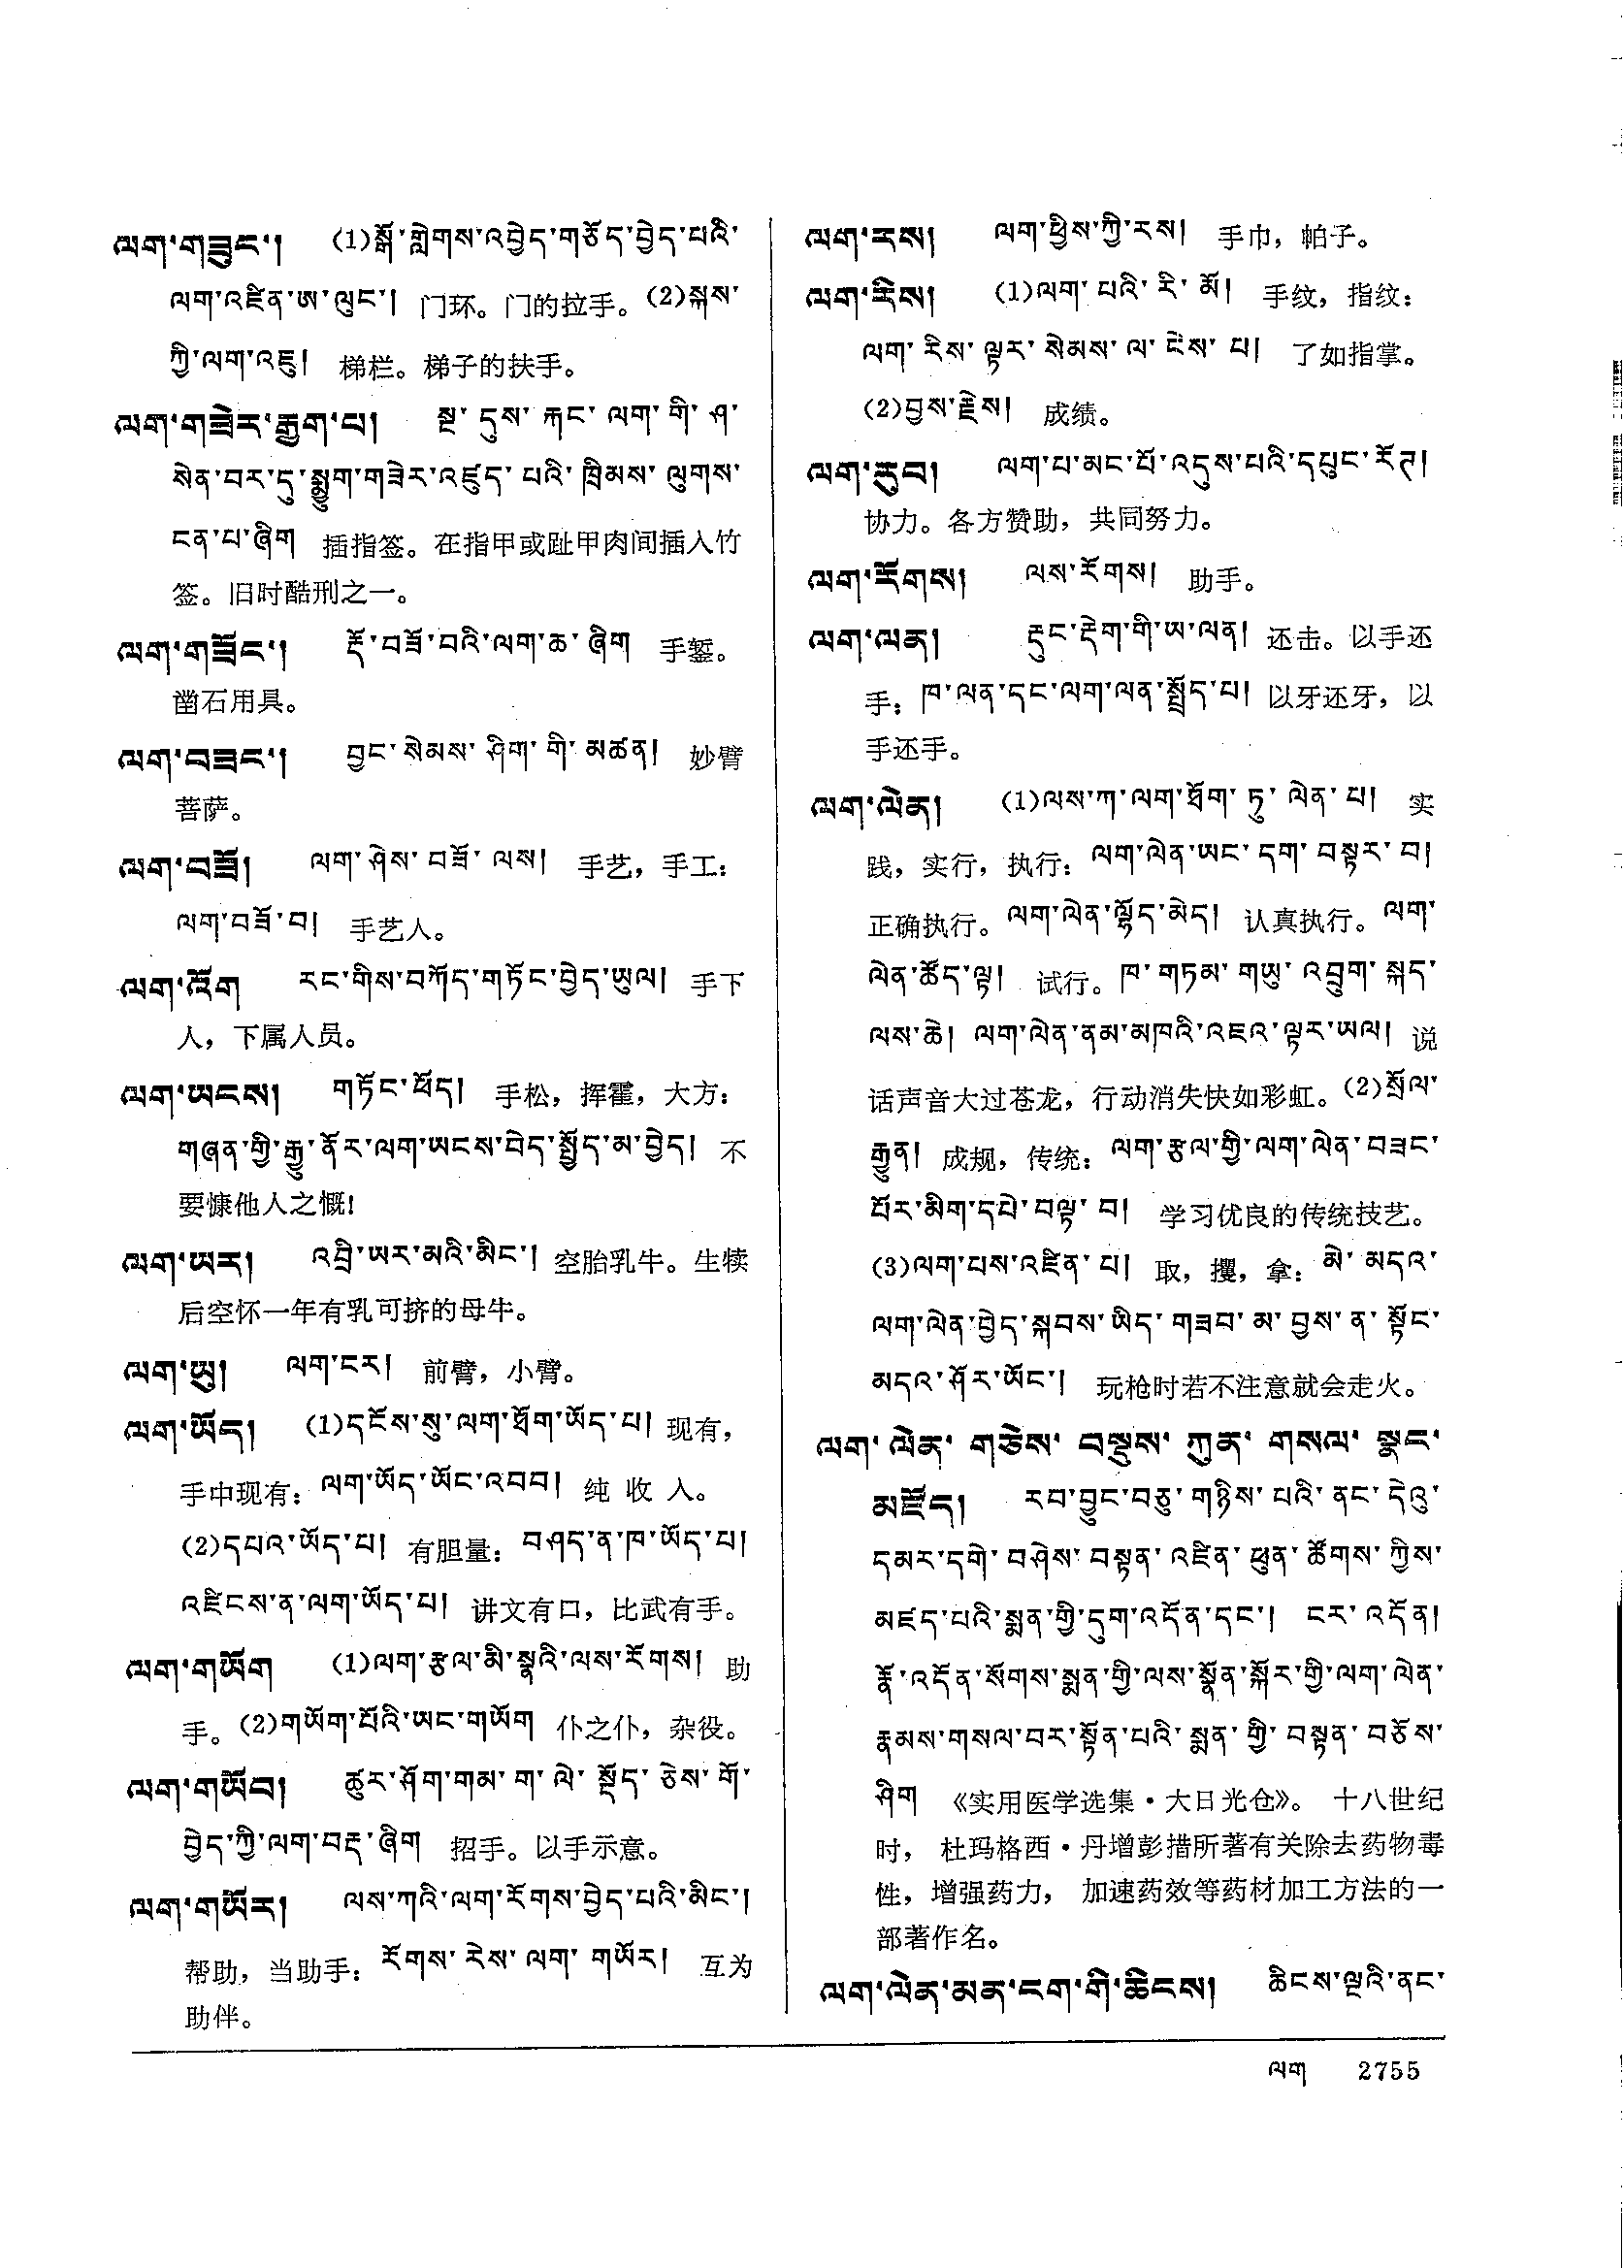 ལག་གཟུང་། (1)སྒོ་གླེགས་འབྱེད་གཙོད་བྱེད་པའི་
ལག་འཛིན་ཨ་ལུང་། 门环。门的拉手。(2)སྐས་
ཀྱི་ལག་འཇུ། 梯栏。梯子的扶手。
ལག་གཟེར་རྒྱག་པ། སྔ་དུས་རྐང་ལག་གི་ཤ་
སེན་བར་དུ་སྨྱུག་གཟེར་འཛུད་པའི་ཁྲིམས་ལུགས་
ངན་པ་ཞིག 插指签。在指甲或趾甲肉间插入竹
签。旧时酷刑之一。
ལག་གཟོང་། རྡོ་བཟོ་བའི་ལག་ཆ་ཞིག 手錾。
凿石用具。
ལག་བཟང་། བྱང་སེམས་ཤིག་གི་མཚན། 妙臂
菩萨。
ལག་བཟོ། ལག་ཤེས་བཟོ་ལས། 手艺，手工：
ལག་བཟོ་བ། 手艺人。
ལག་འོག རང་གིས་བཀོད་གཏོང་བྱེད་ཡུལ། 手下
人，下属人员。
ལག་ཡངས། གཏོང་ཕོད། 手松，挥霍，大方：
གཞན་གྱི་རྒྱུ་ནོར་ལག་ཡངས་བེད་སྤྱོད་མ་བྱེད། 不
要慷他人之慨！
ལག་ཡར། འབྲི་ཡར་མའི་མིང་། 空胎乳牛。生犊
后空怀一年有乳可挤的母牛。
ལག་ཡུ། ལག་ངར། 前臂，小臂。
ལག་ཡོད། (1)དངོས་སུ་ལག་ཐོག་ཡོད་པ། 现有，
手中现有：ལག་ཡོད་ཡོང་འབབ། 纯 收 入。
(2)དཔའ་ཡོད་པ། 有胆量：བཤད་ན་ཁ་ཡོད་པ།
འཛིངས་ན་ལག་ཡོད་པ། 讲文有口，比武有手。
ལག་གཡོག (1)ལག་རྩལ་མི་སྣའི་ལས་རོགས། 助
手。(2)གཡོག་པོའི་ཡང་གཡོག 仆之仆，杂役。
ལག་གཡོབ། ཚུར་ཤོག་གམ་ག་ལེ་སྡོད་ཅེས་གོ་
བྱེད་ཀྱི་ལག་བརྡ་ཞིག 招手。以手示意。
ལག་གཡོར། ལས་ཀའི་ལག་རོགས་བྱེད་པའི་མིང་།
帮助，当助手：རོགས་རེས་ལག་གཡོར། 互为
助伴。
ལག་རས། ལག་ཕྱིས་ཀྱི་རས། 手巾，帕子。
ལག་རིས། (1)ལག་པའི་རི་མོ། 手纹，指纹：
ལག་རིས་ལྟར་སེམས་ལ་ངེས་པ། 了如指掌。
(2)བྱས་རྗེས། 成绩。
ལག་རུབ། ལག་པ་མང་པོ་འདུས་པའི་དཔུང་རོཊ།
协力。各方赞助，共同努力。
ལག་རོགས། ལས་རོགས། 助手。
ལག་ལན། རྡུང་རྡེག་གི་ཨ་ལན། 还击。以手还
手：ཁ་ལན་དང་ལག་ལན་སྤྲོད་པ། 以牙还牙，以
手还手。
ལག་ལེན། (1)ལས་ཀ་ལག་ཐོག་ཏུ་ལེན་པ། 实
践，实行，执行：ལག་ལེན་ཡང་དག་བསྟར་བ།
正确执行。ལག་ལེན་ལྷོད་མེད། 认真执行。ལག་
ལེན་ཚོད་ལྟ། 试行。ཁ་གཏམ་གཡུ་འབྲུག་སྐད་
ལས་ཆེ། ལག་ལེན་ནམ་མཁའི་འཇའ་ལྟར་ཡལ། 说
话声音大过苍龙，行动消失快如彩虹。(2)སྲོལ་
རྒྱུན། 成规，传统：ལག་རྩལ་གྱི་ལག་ལེན་བཟང་
པོར་མིག་དཔེ་བལྟ་བ། 学习优良的传统技艺。
(3)ལག་པས་འཛིན་པ། 取，攫，拿：མེ་མདའ་
ལག་ལེན་བྱེད་སྐབས་ཡིད་གཟབ་མ་བྱས་ན་སྟོང་
མདའ་ཤོར་ཡོང་། 玩枪时若不注意就会走火。
ལག་ལེན་གཅེས་བསྡུས་ཀུན་གསལ་སྣང་
མཛོད། རབ་བྱུང་བཅུ་གཉིས་པའི་ནང་དེའུ་
དམར་དགེ་བཤེས་བསྟན་འཛིན་ཕུན་ཚོགས་ཀྱིས་
མཛད་པའི་སྨན་གྱི་དུག་འདོན་དང་། ངར་འདོན།
རྣོ་འདོན་སོགས་སྨན་གྱི་ལས་སྣོན་སྐོར་གྱི་ལག་ལེན་
རྣམས་གསལ་བར་སྟོན་པའི་སྨན་གྱི་བསྟན་བཅོས་
ཤིག 《实用医学选集·大日光仓》。十八世纪
时，杜玛格西·丹增彭措所著有关除去药物毒
性，增强药力，加速药效等药材加工方法的一
部著作名。
ལག་ལེན་མན་ངག་གི་ཆིངས། ཆིངས་ལྔའི་ནང་
ལག 2755